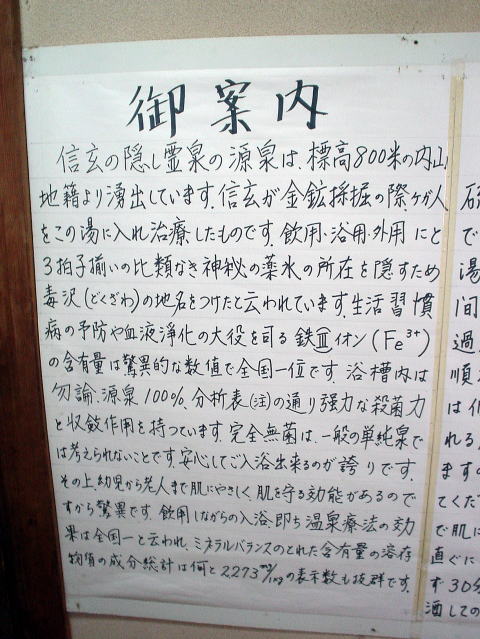 御案内
信玄の隠し霊泉の源泉は、標高800米の内山
地籍より湧出しています。信玄が金鉱採掘の際、ケガ人
をこの湯に入れ治療したものです。飲用・浴用・外用にと
3拍子揃いの比類なき神秘の薬水の所在を隠すため
毒沢(どくざわ)の地名をつけたと云われています。生活習慣
病の予防や血液浄化の大役を司る鉄Ⅲイオン(Fe³⁺)
の含有量は驚異的な数値で全国一位です。浴槽内は
勿論、源泉100%、分析表(注)の通り強力な殺菌力
と収斂作用を持っています。完全無菌は、一般の単純泉で
は考えられないことです。安心してご入浴出来るのが誇りです。
その上、幼児から老人まで肌にやさしく、肌を守る効能があるので
すから驚異です。飲用しながらの入浴、即ち温泉療法の効
果は全国一と云われ、ミネラルバランスのとれた含有量の溶存
物質の成分総計は何と2,273mg/kgの表示数も抜群です。
で
湯
間
過
順
は
れる
ますの
てくだ
で肌に
直ぐに
す30分
酒しての